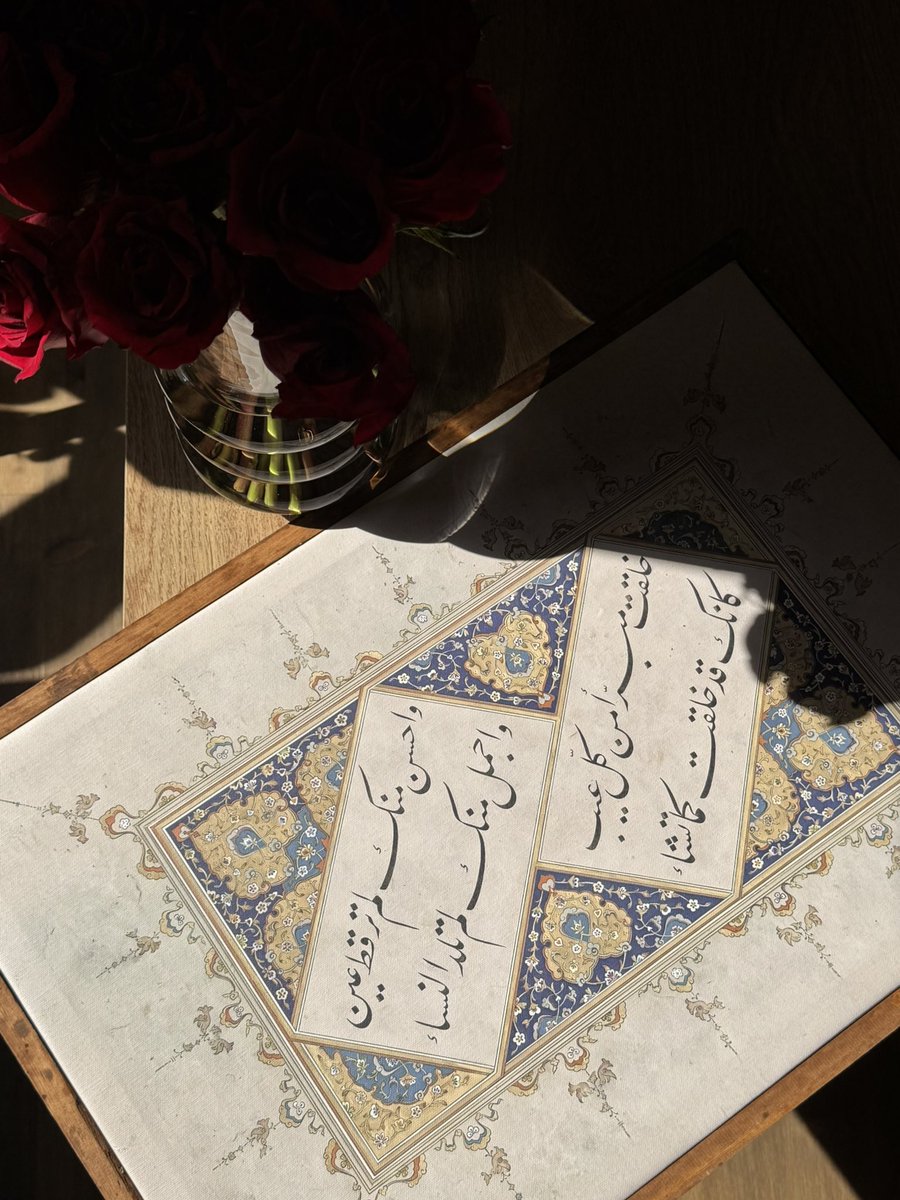 واحسن منك لم ترقط عين
واجمل منك لم تلد النساء
خلقت مبرأ من كل عيب
كانك قد خلقت كما تشاء